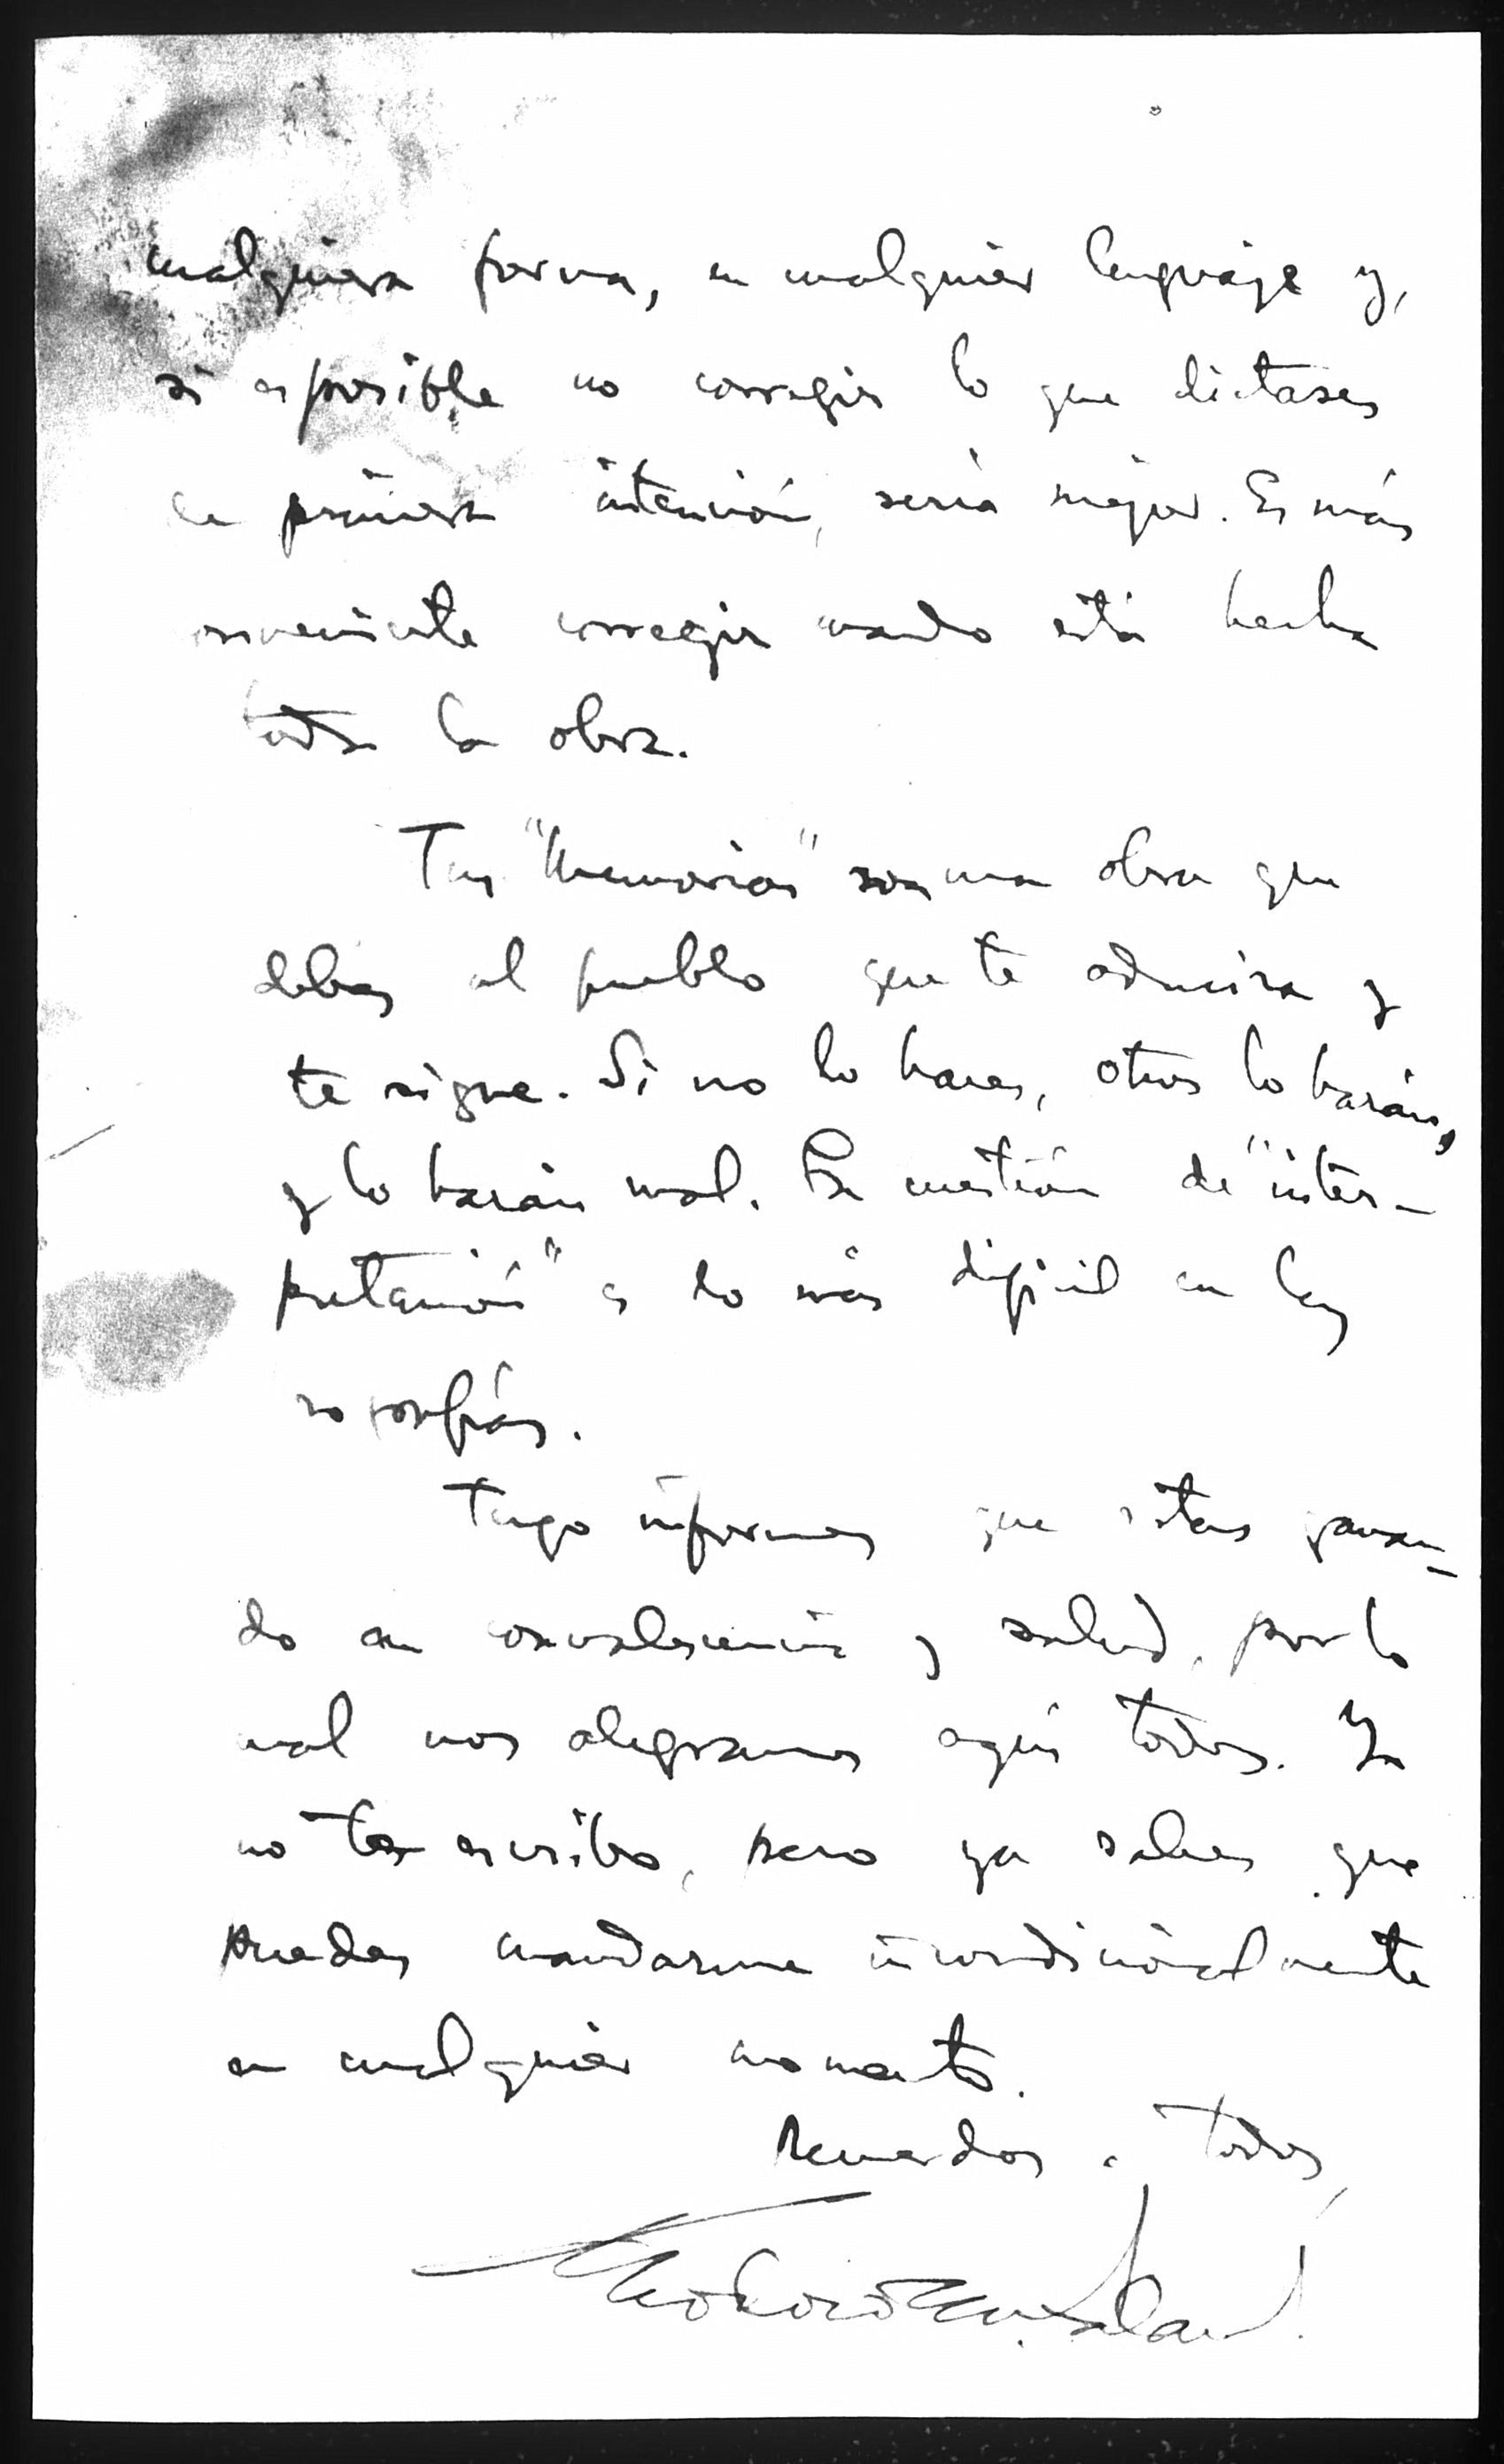 cualquiera forma, en cualquier lenguaje y,
si es posible no corregir lo que dictases
de primera intención, sería mejor. Es más
conveniente corregir cuando está hecha
toda la obra.
Tus "Memorias" son una obra que
debes al pueblo que te admira y
te sigue. Si no lo haces, otros lo harán,
y lo harán mal. Esa cuestión de "inter-
pretación" es lo más difícil en las
Tengo informes que estás ganan-
do en convalescencia y salud, por lo
cual nos alegramos aquí todos. Ya
no te escribo, pero ya sabes que
puedes mandarme incondicionalmente
en cualquier momento.
Recuerdos a todos,